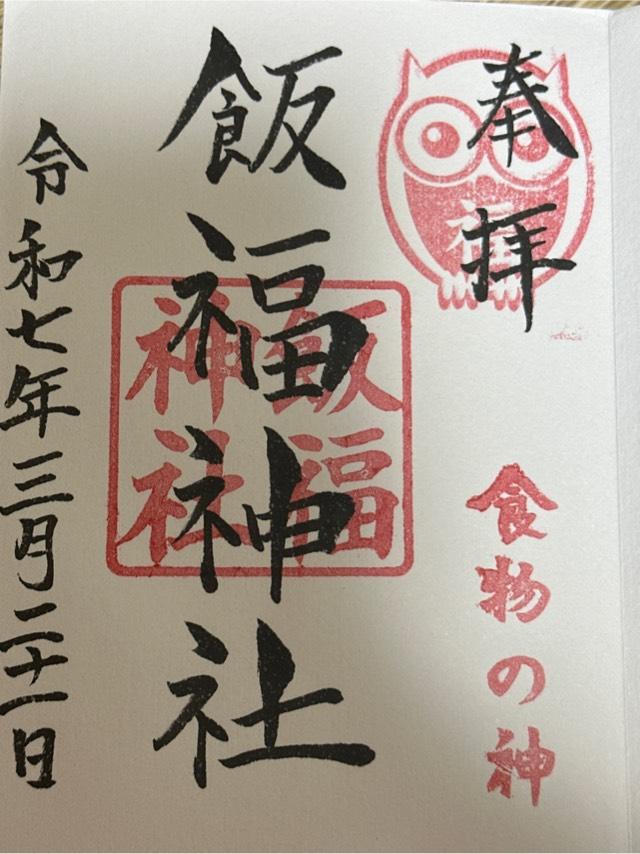 奉拝
福
食物の神
飯福神社
飯福
神社
令和七年三月二十一日